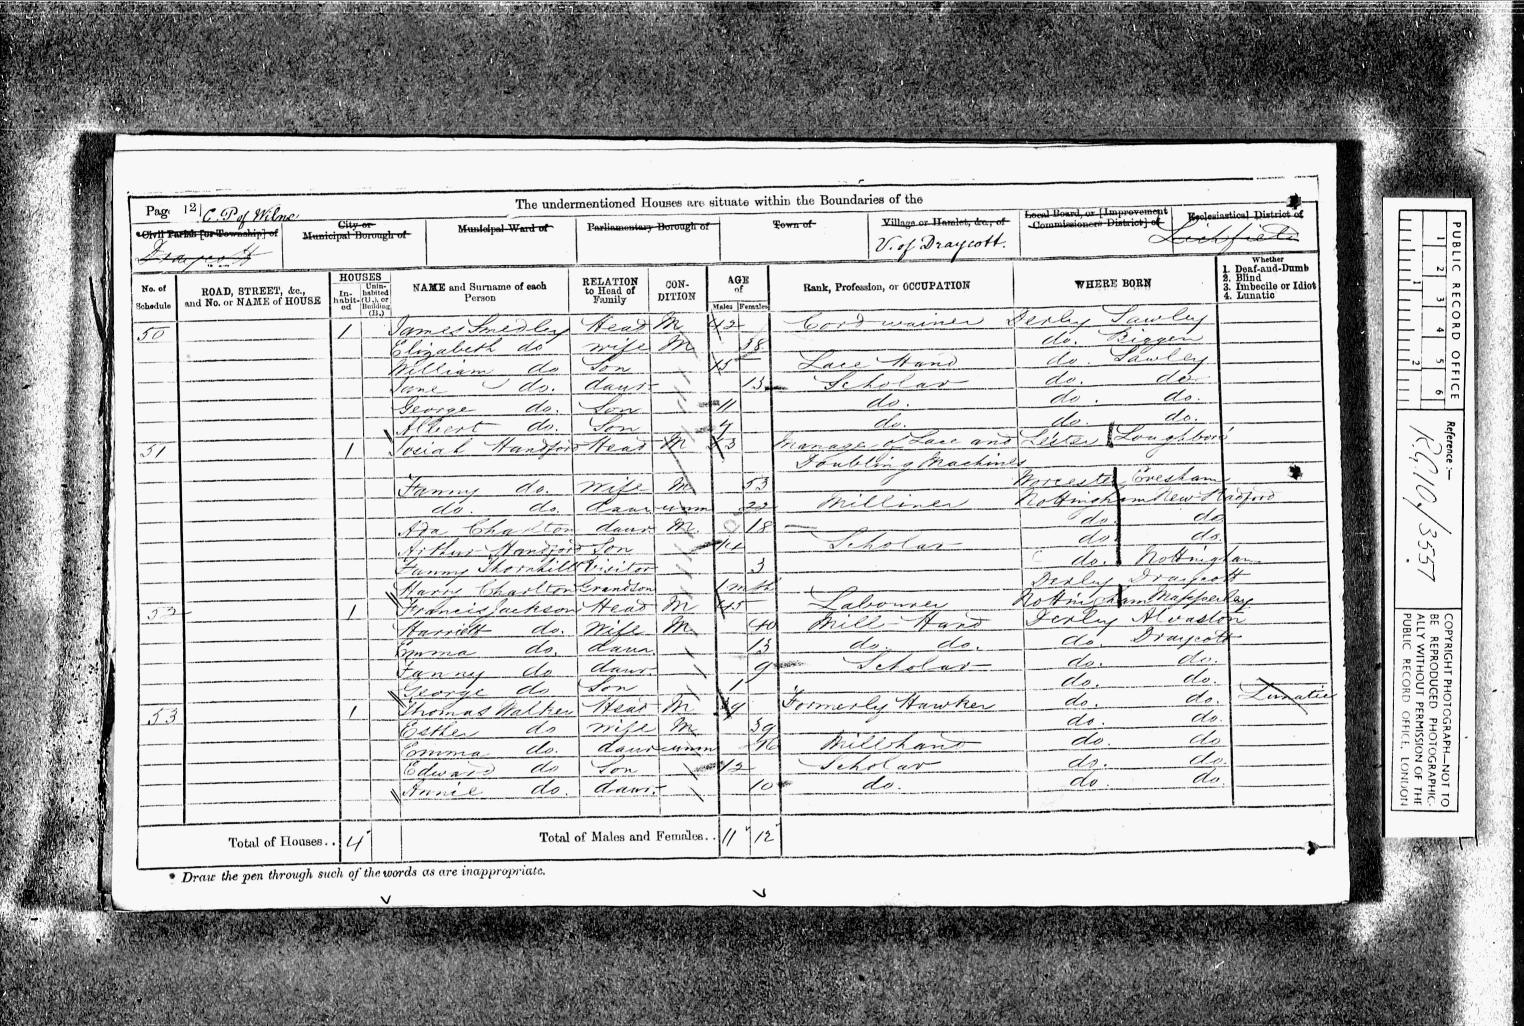 The undermentioned Houses are situate within the Boundaries of the
Page 12 C.P. of Wilne
*Civil Parish [or Township] of
Draycott
City or Municipal Borough of
Municipal Ward of
Parliamentary Borough of
Town of
Village or Hamlet, &c., of
V. of Draycott.
Local Board, or [Improvement Commissioners District] of
Ecclesiastical District of
Lichfield
No. of Schedule
ROAD, STREET, &c., and No. or NAME of HOUSE
HOUSES
In-habit-ed
Unin-habited (U.), or Building (B.)
NAME and Surname of each Person
RELATION to Head of Family
CON-DITION
AGE of
Males Females
Rank, Profession, or OCCUPATION
WHERE BORN
Whether
1. Deaf-and-Dumb
2. Blind
3. Imbecile or Idiot
4. Lunatic
50 1 James Smedley Head M 42 Cordwainer Derby Sawley
Elizabeth do wife M 38 do. Biggen
William do Son 15 Lace Hand do. Sawley
Jane do. daur 13 Scholar do. do.
George do. Son 11 do. do. do.
Albert do. Son do. do. do.
51 1 Josiah Handford Head M Manager of Lace and Leister Loughboro
Doubling Machines
Fanny do. wife M 53 Worcester Evesham
do. do. daur unm 22 Milliner Nottingham New Radford
Ada Charlton daur M 18 do. do.
Arthur Handford Son 14 Scholar do. do.
Fanny Thornhill Visitor 3 do. Nottingham
Harry Charlton Grandson 1 mth Derby Draycott
52 1 Francis Jackson Head M 45 Labourer Nottingham Mapperley
Harriett do. Wife M 40 Mill Hand Derby Alvaston
Emma do. daur 13 do. do. do. Draycott
Fanny do daur 9 Scholar do. do.
George do Son 1 do. do.
53 1 Thomas Walker Head M 39 Formerly Hawker do. do. Lunatic
Esther do wife M 39 do. do.
Emma do. daur unm Mill hand do. do
Edward do Son 12 Scholar do. do.
Annie do. daur 10 do. do. do.
Total of Houses.. 4
Total of Males and Females.. 11 12
* Draw the pen through such of the words as are inappropriate.
PUBLIC RECORD OFFICE
1 2 3 4 5 6
1 2
Reference :—
RG10/3557
COPYRIGHT PHOTOGRAPH—NOT TO
BE REPRODUCED PHOTOGRAPHIC-
ALLY WITHOUT PERMISSION OF THE
PUBLIC RECORD OFFICE, LONDON